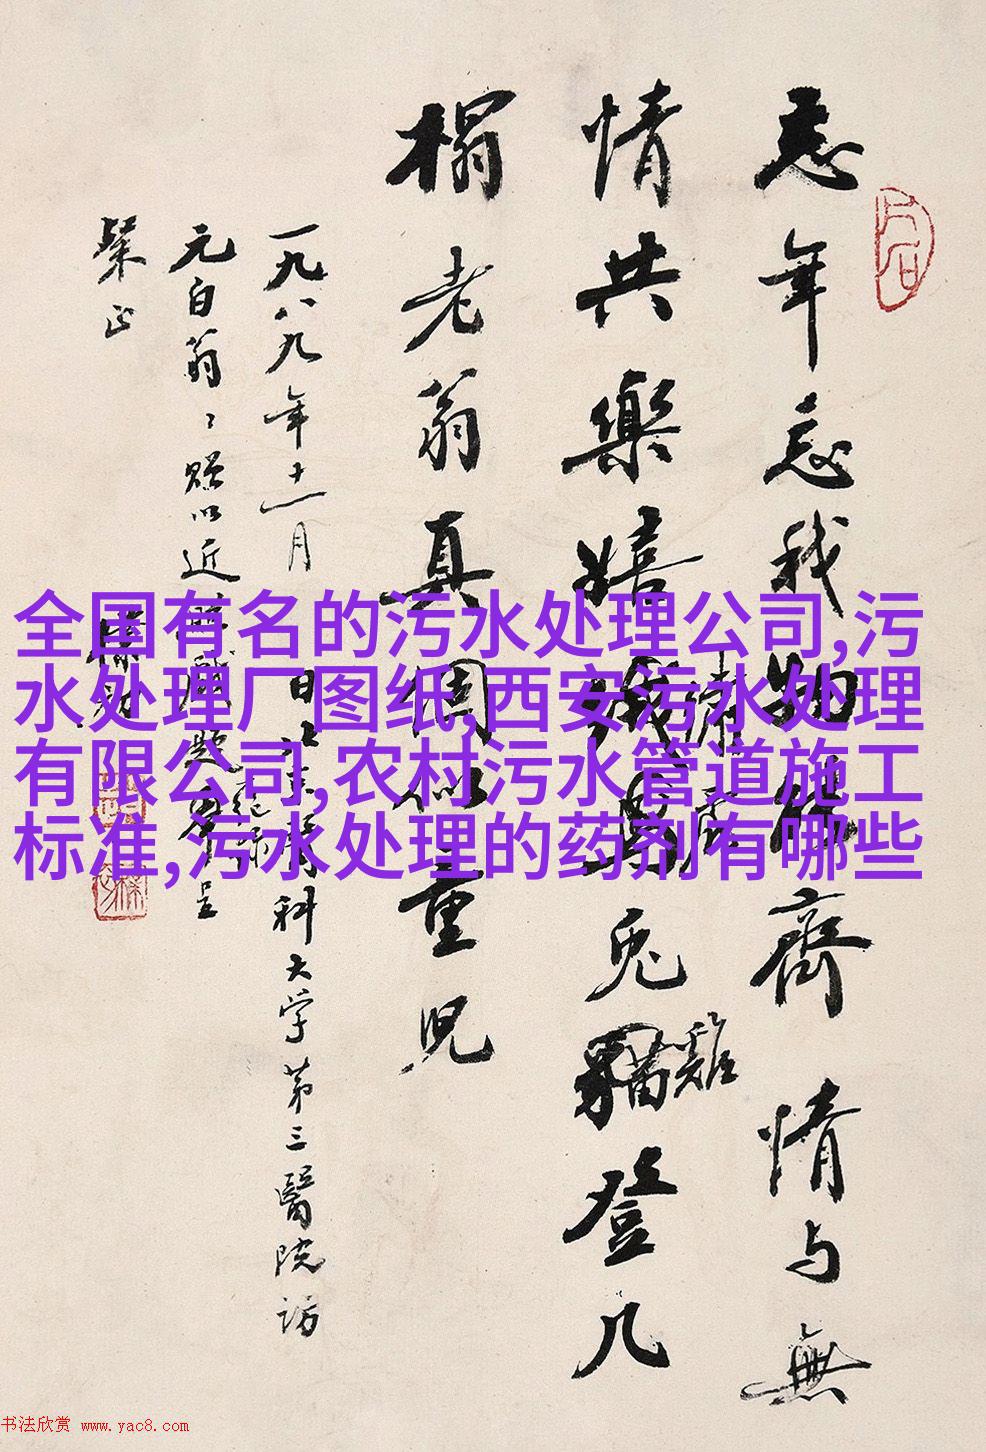 忘年忘我物能齐 情与無
情共樂嬉 兎猫登几
榻老翁真個似重児
雞
一九八九年十一月 日 科大学第三醫院訪
元白翁〻赠以近 題 呈
粲正
全国有名的污水处理公司,污
水处理厂图纸,西安污水处理
有限公司,农村污水管道施工
标准,污水处理的药剂有哪些
书法欣赏 www.yac8.com